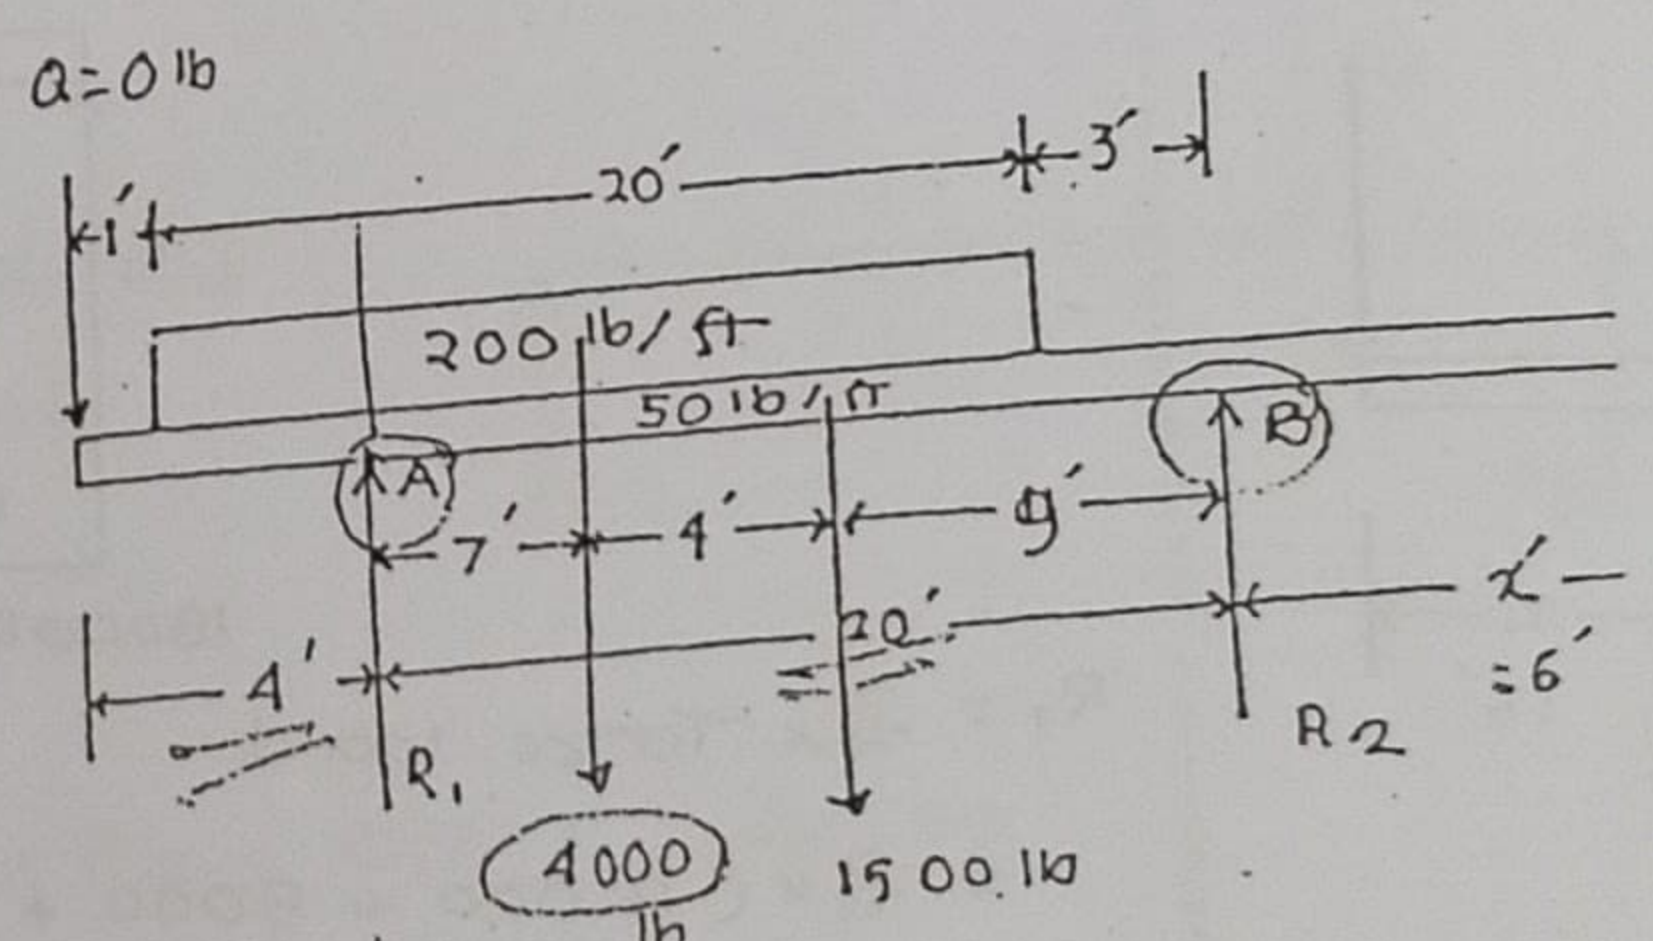 Q=0 lb
3'
20'
1'
200 lb/ft
50 lb/ft
A
B
7'
4'
9'
x'
=6'
4'
20'
R1
R2
4000
lb
1500 lb